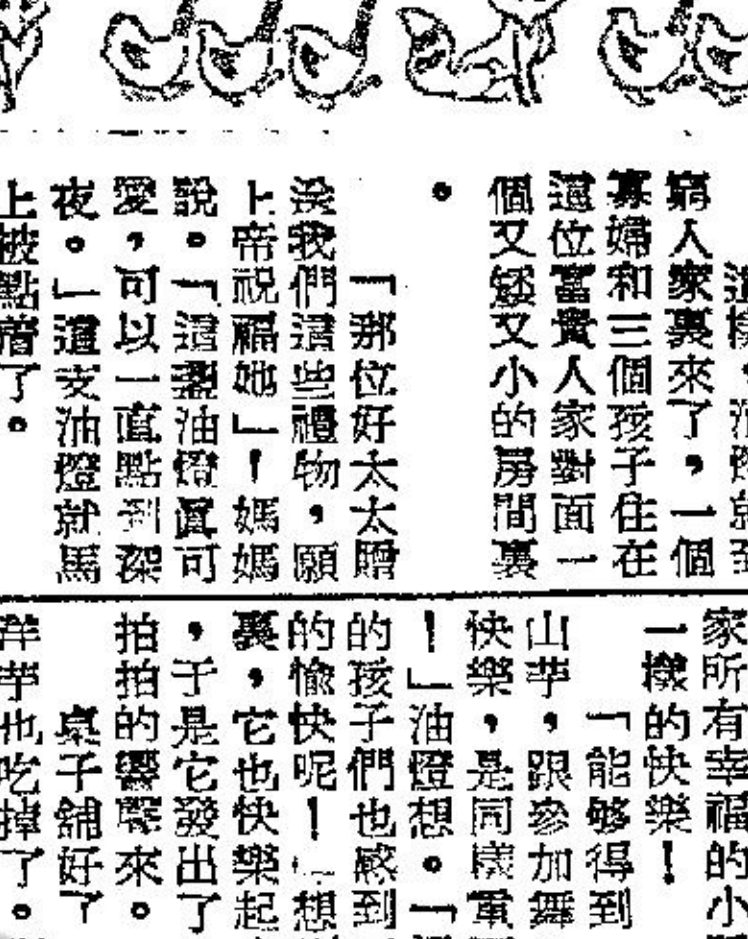 這樣,油燈就到
窮人家裏來了,一個
寡婦和三個孩子住在
這位富貴人家對面一
個又矮又小的房間裏
。
「那位好太太贈
給我們這些禮物,願
上帝祝福她」!媽媽
說。「這盞油燈眞可
愛,可以一直點到深
夜。」這支油燈就馬
上被點着了。
家所有幸福的小
一樣的快樂!
「能够得到
山芋,跟參加舞
快樂,是同樣
!」油燈想。「
的孩子們也感到
的愉快呢!」想
裏,它也快樂起
,于是它發出了
拍拍的響聲來。
桌子舖好了
洋芋也吃掉了。